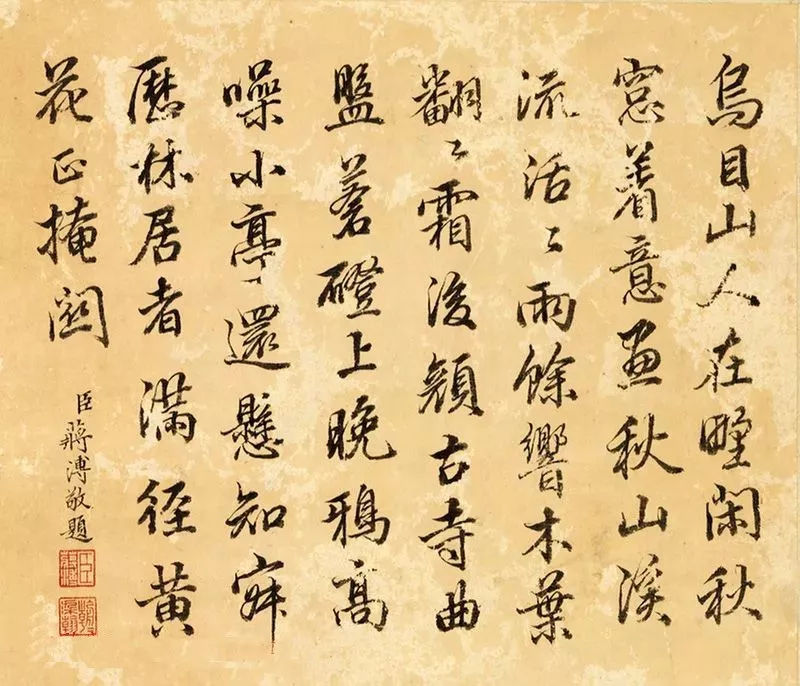 烏目山人在墅閑秋
窓着意畫秋山溪
流活〻雨餘響木葉
翻〻霜後顏古寺曲
盤蒼磴上晚鴉高
噪小亭還懸知寂
歷林居者滿徑黃
花正掩關
臣蔣溥敬題